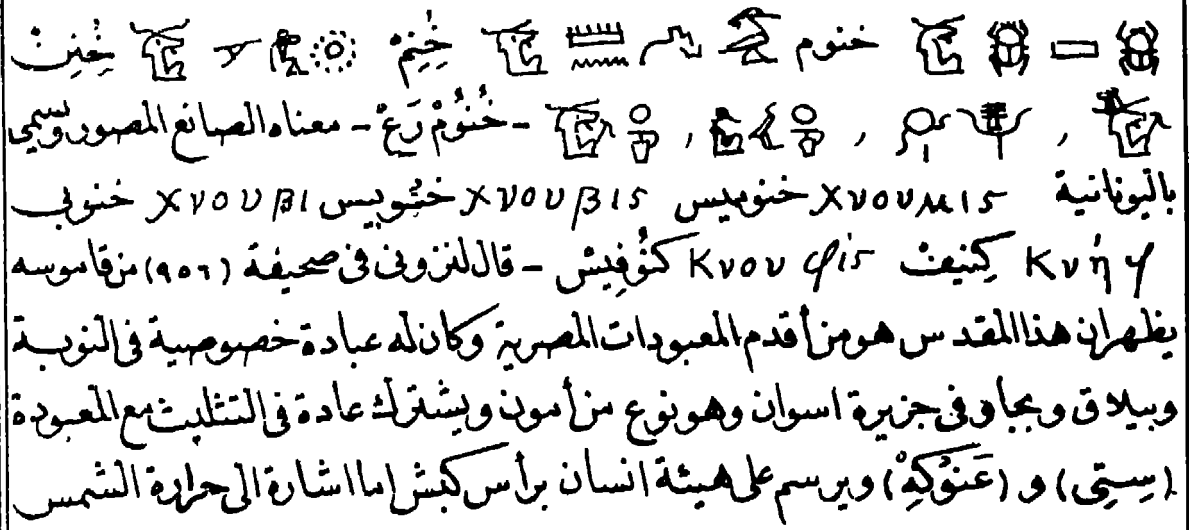 خنوم خِنِمْ خِنِتْ
- خُنُومْ رَعْ - معناه الصانع المصور وسمى
باليونانية Χνουμις خنوميس Χνουβις خنوبيس Χνουβι خنوبى
Κνήφ كِنيفْ Κνουφις كنُوفِيسْ - قال لنزونى فى صحيفة (٩٥٦) من قاموسه
يظهران هذا المقدس هو من أقدم المعبودات المصرية وكان له عبادة خصوصية فى النوبة
وبيلاق وبجاو فى جزيرة اسوان وهو نوع من أمون ويشترك عادة فى التثليث مع المعبودة
(سِتِى) و (عَنُوكِهْ) ويرسم على هيئة انسان برأس كبش اما اشارة الى حرارة الشمس